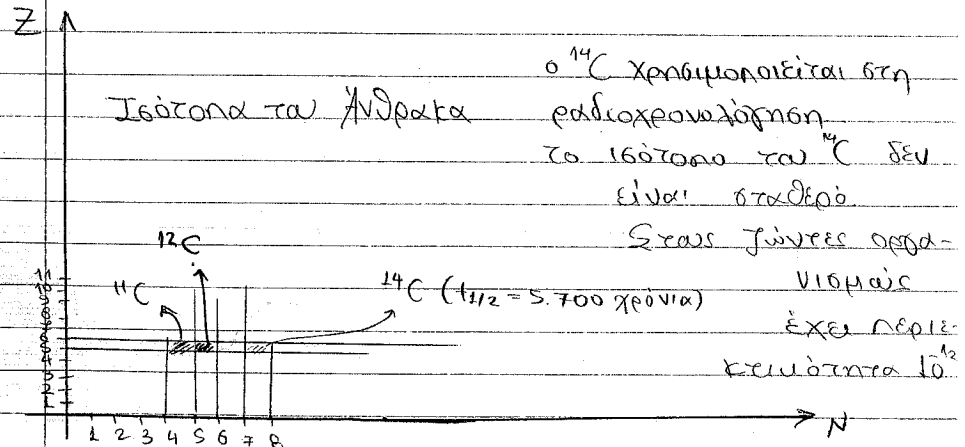 Z
Ισότοπα του Άνθρακα
ο ¹⁴C χρησιμοποιείται στη
ραδιοχρονολόγηση
το ισότοπο του ¹⁴C δεν
είναι σταθερό
Στους ζώντες οργα-
νισμούς
έχει περιε-
κτικότητα 10⁻¹²
¹²C
¹¹C
¹⁴C (t₁/₂ = 5.700 χρόνια)
1 2 3 4 5 6 7 8
N